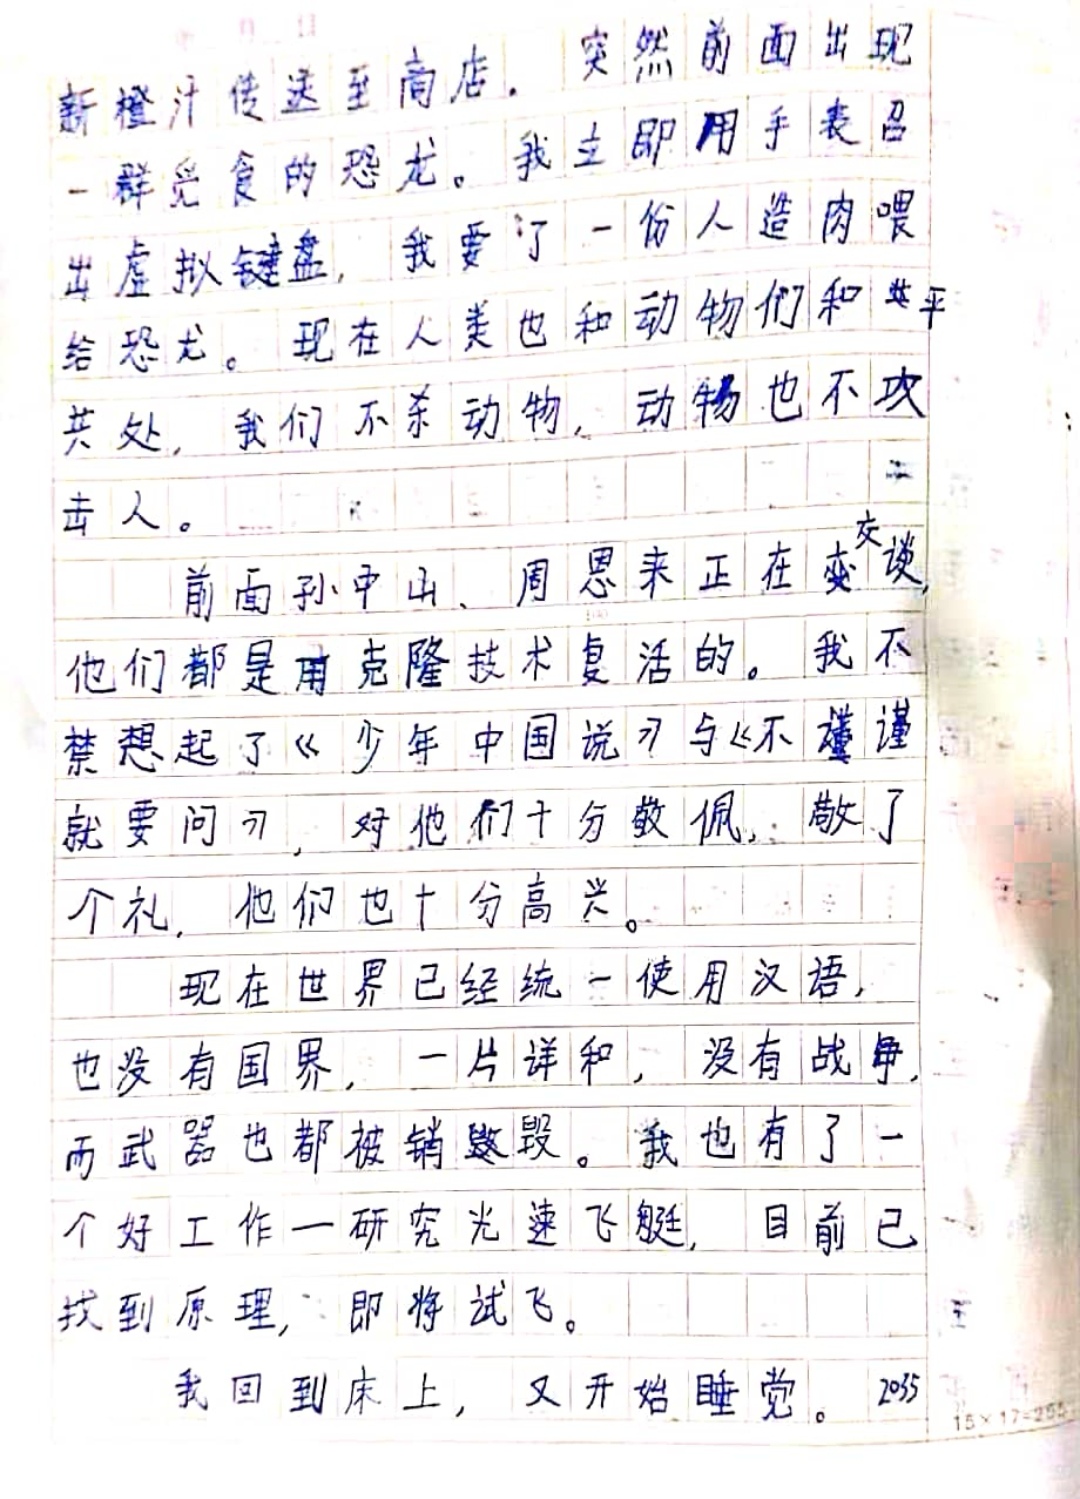 新橙汁传送至商店。突然前面出现
一群觅食的恐龙。我立即用手表召
出虚拟键盘，我要了一份人造肉喂
给恐龙。现在人类也和动物们和平
共处，我们不杀动物，动物也不攻
击人。
前面孙中山、周恩来正在交谈，
他们都是用克隆技术复活的。我不
禁想起了《少年中国说》与《不谨
就要问》，对他们十分敬佩，敬了
个礼，他们也十分高兴。
现在世界已经统一使用汉语，
也没有国界，一片详和，没有战争，
而武器也都被销毁。我也有了一
个好工作—研究光速飞艇，目前已
找到原理，即将试飞。
我回到床上，又开始睡觉。2035
15×17=255